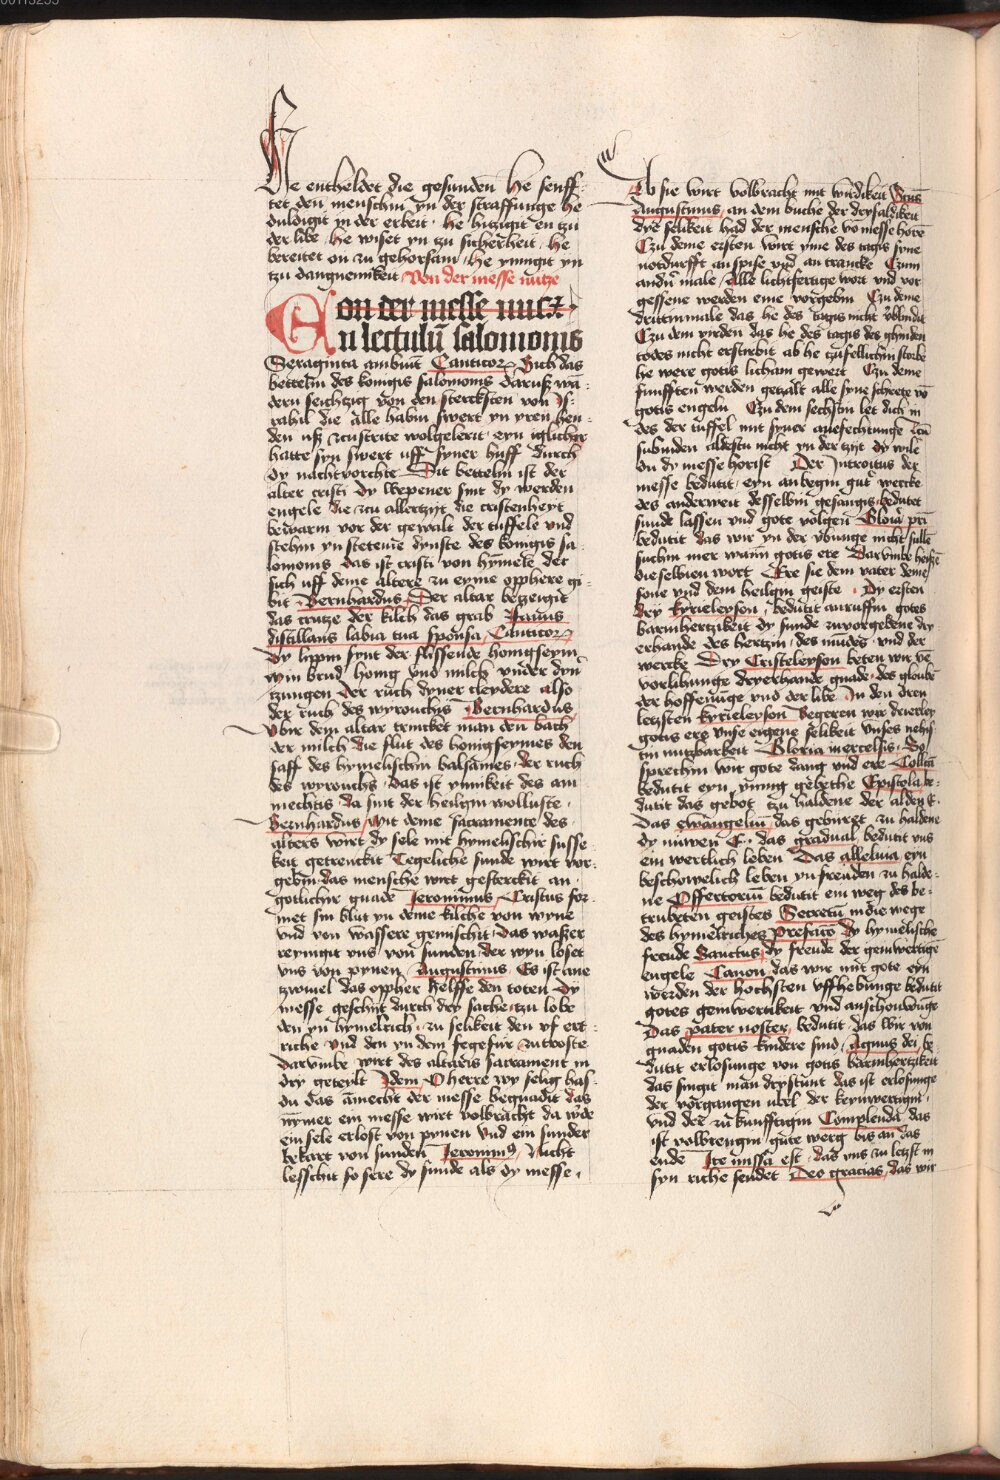 He entheldet die gesunden He senff-
tet den menschin yn der straffunge he
duldigit yn der erbeit · he hitzigit en tzu
der libe, he wiset yn tzu sicherheit, he
bereitet on zu gehorsam, he ynnigit yn
tzu dangnemikeit Von der messe nutze
Von der messe nucz
En lectulū salomonis
Sexaginta ambiūt Canticor Sich das
bettelin des konigis salomonis daruff wa-
dern sechtzig von den stercksten von Is-
rahil die alle habin swert yn yren hen-
den uff zcustrite wolgelerit, eyn iglicher
hatte syn swert uff syner huff durch
dy nachtvorchte Dit bettelin ist der
alter cristi dy wepener sint dy werden
engele die zcu allertzyt die cristenheyt
bewarin vor der gewalt der tuffele vnd
stehin yn steteme dynste des konigis sa-
lomonis das ist cristi von hymele der
sich uff deme altere zu eyme opphere gi-
bit Bernhardus Der altar betzeigit
das crutze der kilch das grab Fauus
distillans labia tua sponsa Canticor
Dy lippin synt der flissende honigseym
myn brud honig vnd milch vnder dyn
tzungen der ruch dyner cleydere also
der ruch des wyrouchis Bernhardus
Vbir dem altar trincket man den bach
der milch die flut des honigseymes den
saff des hymelischin balsames, der ruch
des wyrouchs, das ist ynnikeit des am-
mechtis da sint der heiligin wolluste,
Bernhardus, Mit deme sacramente des
alters wirt dy sele mit hymelischir susse-
keit getrenckit Tegeliche sunde wirt vor-
gebin, das mensche wirt gesterckit an
gotlicher gnade Jeronimus, Cristus for-
met sin blut yn deme kilche von wyne
vnd von wassere gemischit, das wasser
reynigit vns von sunden, der wyn loset
vns von pynen, Augustinus, Es ist ane
tzwiuel das oppher helffe den toten Dy
messe geschyt durch dry sache, tzu lobe
den yn hymelrich, zu selikeit den vf ert-
riche vnd den yn dem fegefur zutroste
Darvmbe wirt des altaris sacrament in
dry geteilt Idem, O herre wy selig has-
du das ammecht der messe begnadit das
nymer ein messe wirt volbracht da werde
ein sele erlost von pynen vnd ein sunder
bekart von sunden Jeronimus, Nicht
lesschit so sere dy sunde als dy messe,
Ab sie wirt volbracht mit wirdikeit Scus
Augustinus, an dem buche der dryfaldikeit
dye selikeit had der mensche vō messe horē
Czu deme ersten wirt yme des tagis syne
notdurfft an spise vnd an trancke Czum
andn male, Alle lichtfertige wort vnd vor-
gessene werden eme vorgebin Czu deme
drittinmale das he des tagis nicht vblindit
Czu dem virden das he des tagis des gehinden
todes nicht erstirbit ab he tzufellichin storbe
he were gotis licham gewert Czu deme
funfften werden getzalt alle syne schrete vō
gotis engeln Czu dem sechstin let dich in
des der tuffel mit syner anefechtunge zcu
subinden aldestu nicht yn der tzyt dy wile
du dy messe horist Der Introitus der
messe bedutit, eyn anbegin gut wercke
des anderweit desselbin gesangis bedutet
sunde lassen vnd gote volgen Gloria pri
bedutit das wir yn der vbunge nicht sullē
suchin mer wann gotis ere Darvmbe heissē
dieselbien wort Ere sie dem vater deme
sone vnd dem heiligin geiste, Dy ersten
dry Kyrieleyson, bedutit anruffin gotes
barmhertzikeit dy sunde zuvorgebene dry
erhande des hertzin, des mundes, vnd der
wercke Dry Cristeleyson beten wir vē
vorlihunge dryerhande gnade, des gloubē
der hoffenunge vnd der libe In den dren
letzsten Kyrieleyson Begeren wir drierley
gotis ere vnse eigene selikeit vnses nehis-
tin nutzbarkeit Gloria in excelsis, So
sprechin wir gote dang vnd ere Collcā
bedutit eyn, ynnig gebethe Epistola be-
dutit das gebot tzu haldene der alden E,
Das ewangeliū, das geburet, zu haldene
dy nuwen E, das gradual, bedutit vns
ein wertlich leben Das alleluia eyn
beschowelich leben yn freuden zu halde-
ne Offertoriū bedutit ein weg des be-
trubeten geistes Secretū, in die wege
des hymelriches prefacio dy hymelische
freude Sanctus, dy freude der geinwertigē
engele Canon das wir mit gote eyn
werden der hochsten vffhebunge bedutit
gotes geinwertikeit vnd anschouwūge
Das pater noster, bedutit, das wir von
gnaden gotis kindere sind, Agnus dei, be-
dutit erlosunge von gotis barmhertzikeit
das singit man drystunt das ist erlosunge
der vorgangen ubel der keynwertigin,
vnd der zukunfftigin Complenda das
ist volbrengin gute werg bis an das
ende Ite missa est, das vns zu letzst in
syn riche sendet Deo gracias, das wir